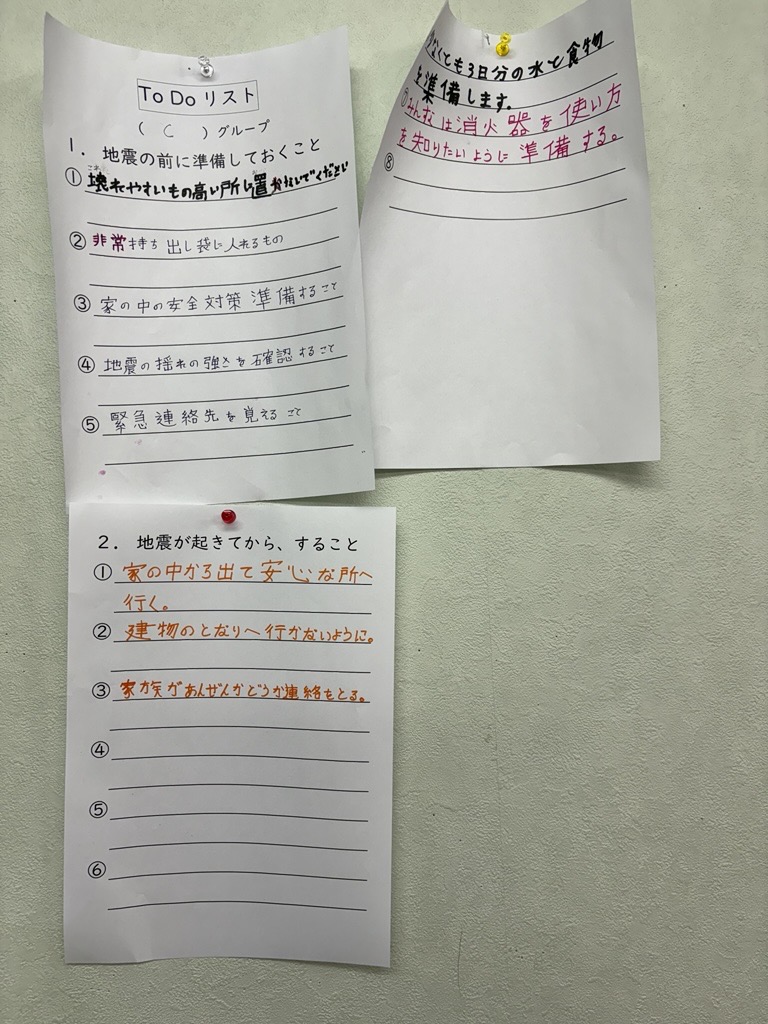 To Do リスト
( C ) グループ
1. 地震の前に準備しておくこと
① 壊れやすいもの高い所に置かないでください
② 非常持ち出し袋に入れるもの
③ 家の中の安全対策 準備すること
④ 地震の揺れの強さを確認すること
⑤ 緊急連絡先を覚えること
なくとも3日分の水と食物
を準備します。
⑦みんなは消火器を使い方
を知りたいように準備する。
⑧
2. 地震が起きてから、すること
① 家の中から出て安心な所へ
行く。
② 建物のとなりへ行かないように。
③ 家族があんぜんかどうか連絡をとる。
④
⑤
⑥